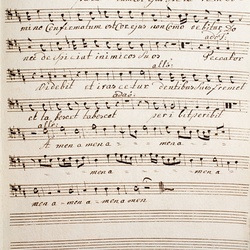 mino Confirmatum est cor ejus non Com o ebitur Do
nec despiciat inimicos suos Peccator
allo:
videbit et irascetur dentibus suis fremet
et ta bescet tabescet peribit peribit
allo:
A men a mena mena
mena mena
men a mena menamen